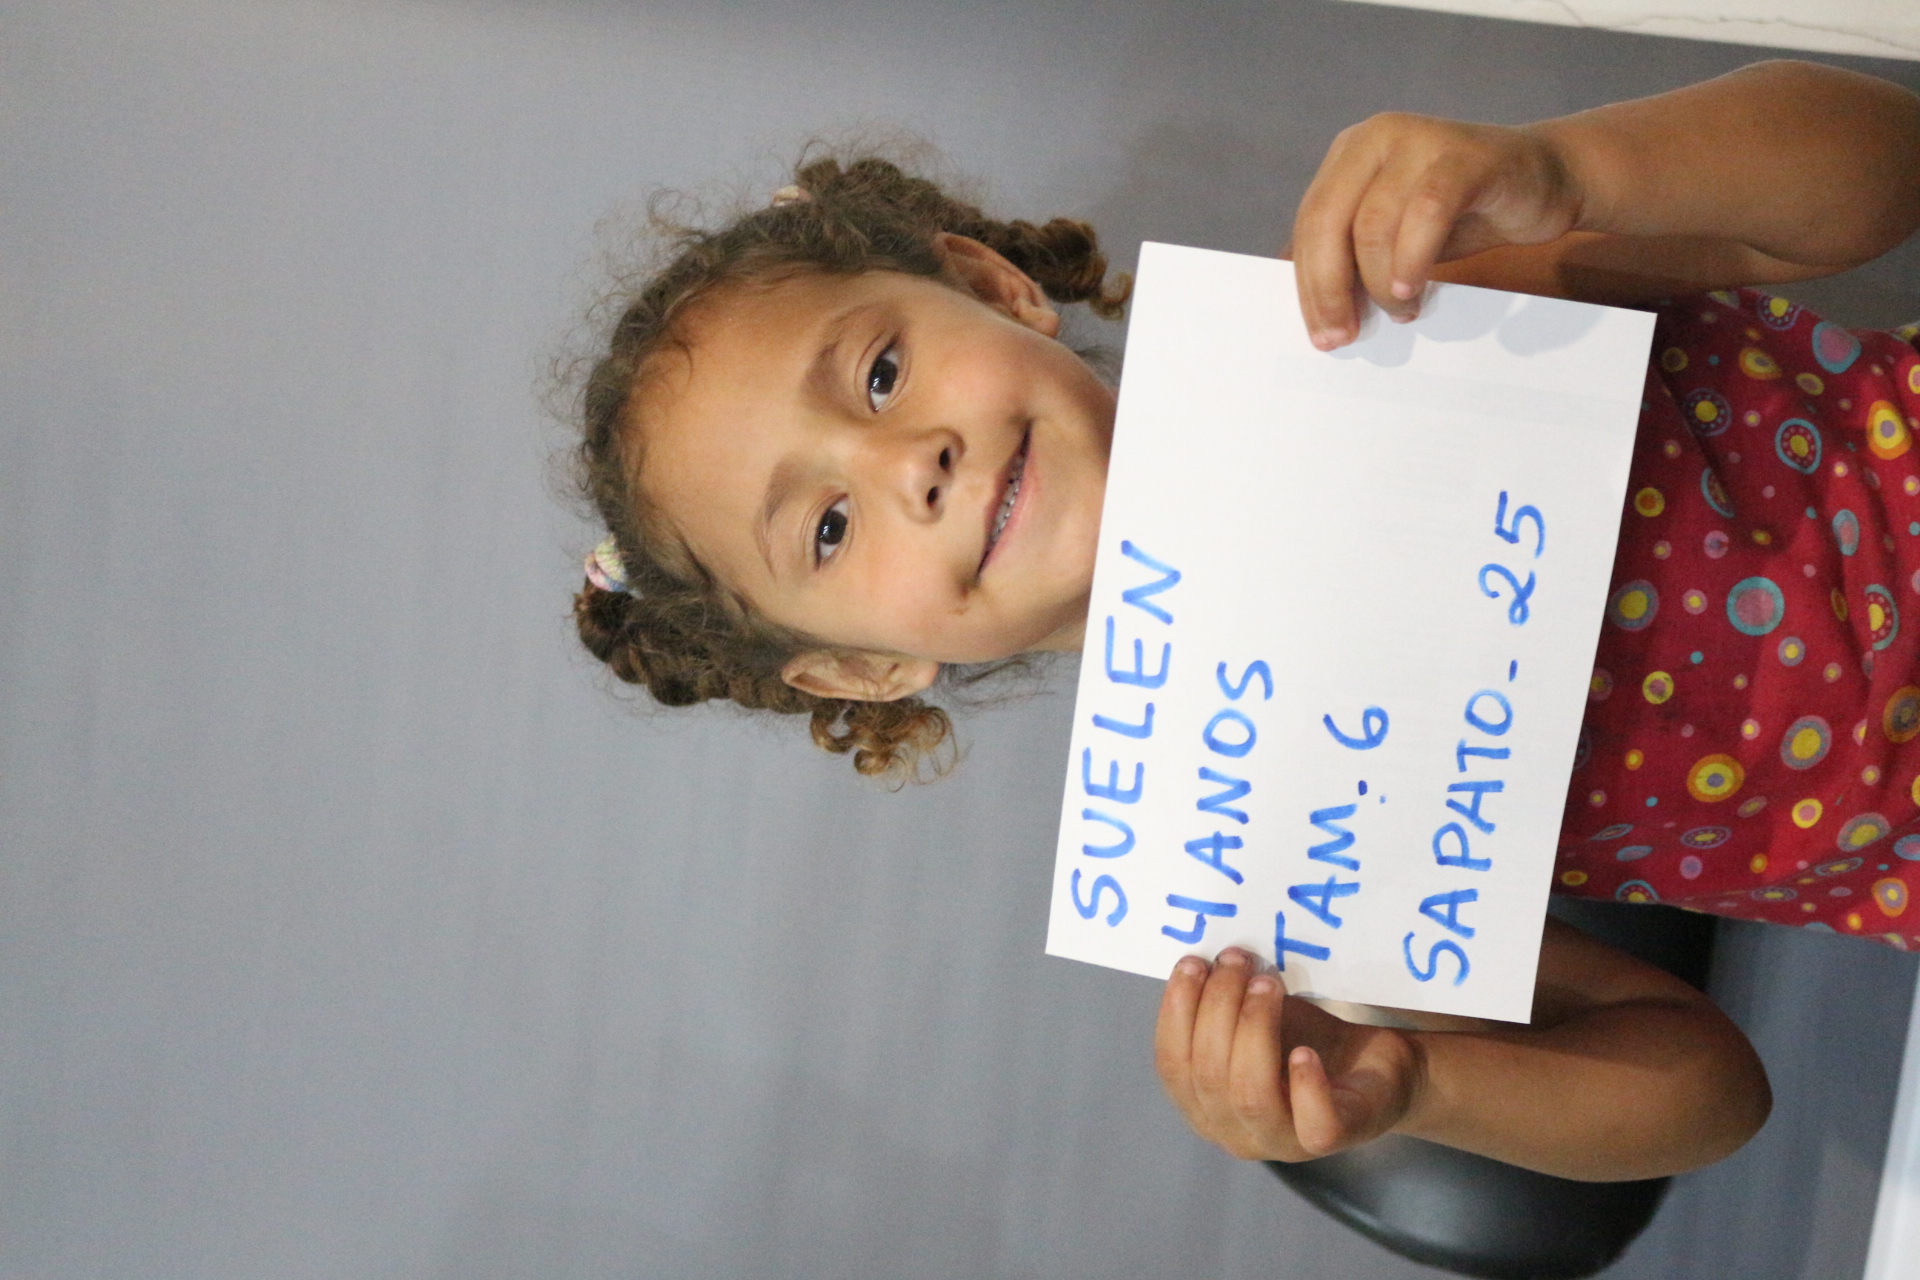 SUELEN
4 ANOS
TAM. 6
SAPATO - 25